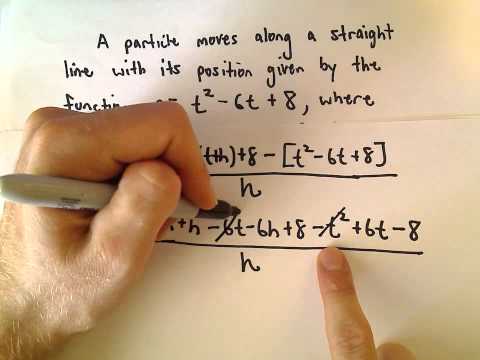 A particle moves along a straight
line with its position given by the
t² - 6t + 8, where
(t+h) + 8 - [t² - 6t + 8]
h
+ h - 6t - 6h + 8 - t² + 6t - 8
h